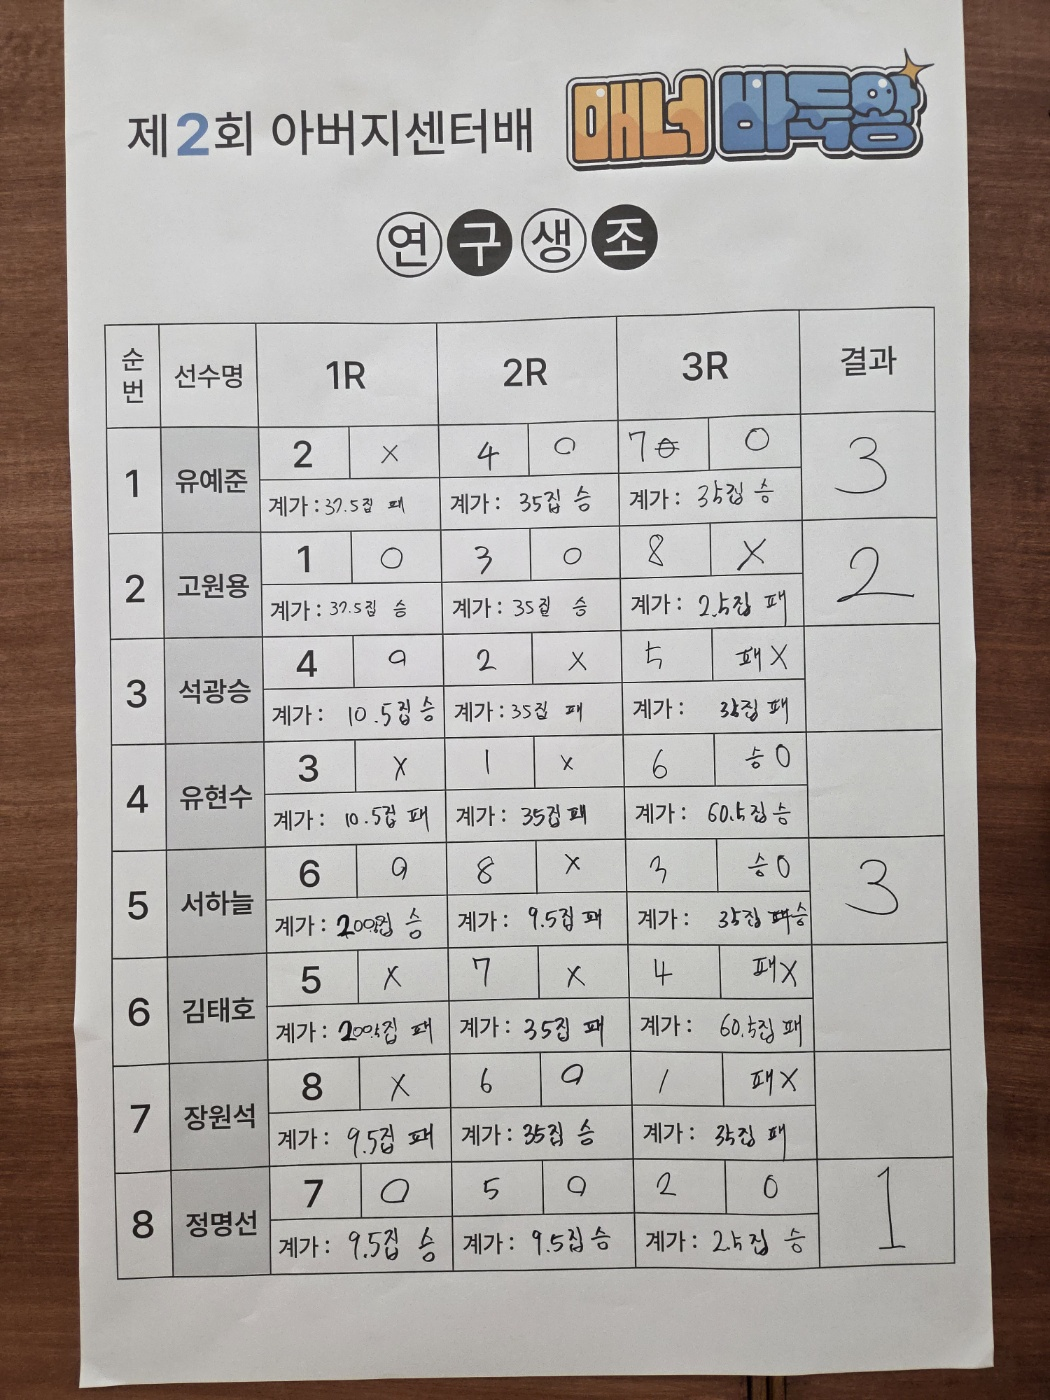 제2회 아버지센터배 매너바둑왕
연구생조
순번 선수명 1R 2R 3R 결과
1 유예준 2 X 4 O 7 O 3
계가: 37.5집 패 계가: 35집 승 계가: 35집 승
2 고원용 1 O 3 O 8 X 2
계가: 37.5집 승 계가: 35집 승 계가: 2.5집 패
3 석광승 4 O 2 X 5 패 X
계가: 10.5집 승 계가: 35집 패 계가: 35집 패
4 유현수 3 X 1 X 6 승 O
계가: 10.5집 패 계가: 35집 패 계가: 60.5집 승
5 서하늘 6 O 8 X 3 승 O 3
계가: 승 계가: 9.5집 패 계가: 35집 승
6 김태호 5 X 7 X 4 패 X
계가: 패 계가: 35집 패 계가: 60.5집 패
7 장원석 8 X 6 O 1 패 X
계가: 9.5집 패 계가: 35집 승 계가: 35집 패
8 정명선 7 O 5 O 2 O 1
계가: 9.5집 승 계가: 9.5집 승 계가: 2.5집 승